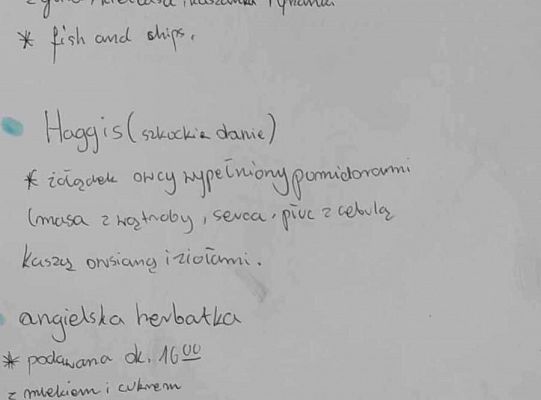 * fish and ships.
Haggis (szkockie danie)
* żołądek owcy wypełniony pomidorami
(masa z wątroby, serca, płuc z cebulą
kaszą owsianą i ziołami.
angielska herbatka
* podawana ok. 16 00
z mlekiem i cukrem